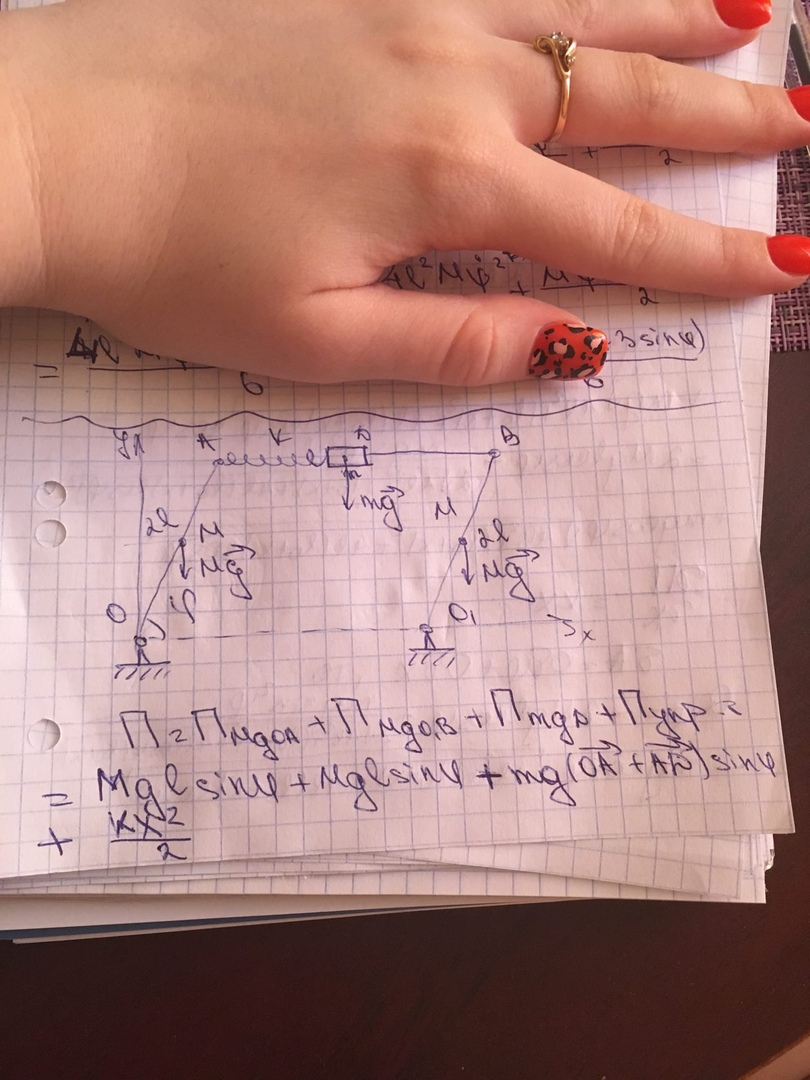 2
4l²Mφ̇² + Mφ
2
= 4l 3 sinφ)
6 6
y A K D B
m
mg⃗
2l M M 2l
Mg⃗ Mg⃗
O φ O₁ x
П = П MgOA + П MgO₁B + П mgD + П упр =
= Mgl sinφ + Mgl sinφ + mg(OA⃗ + AD⃗) sinφ
+ kx²
2